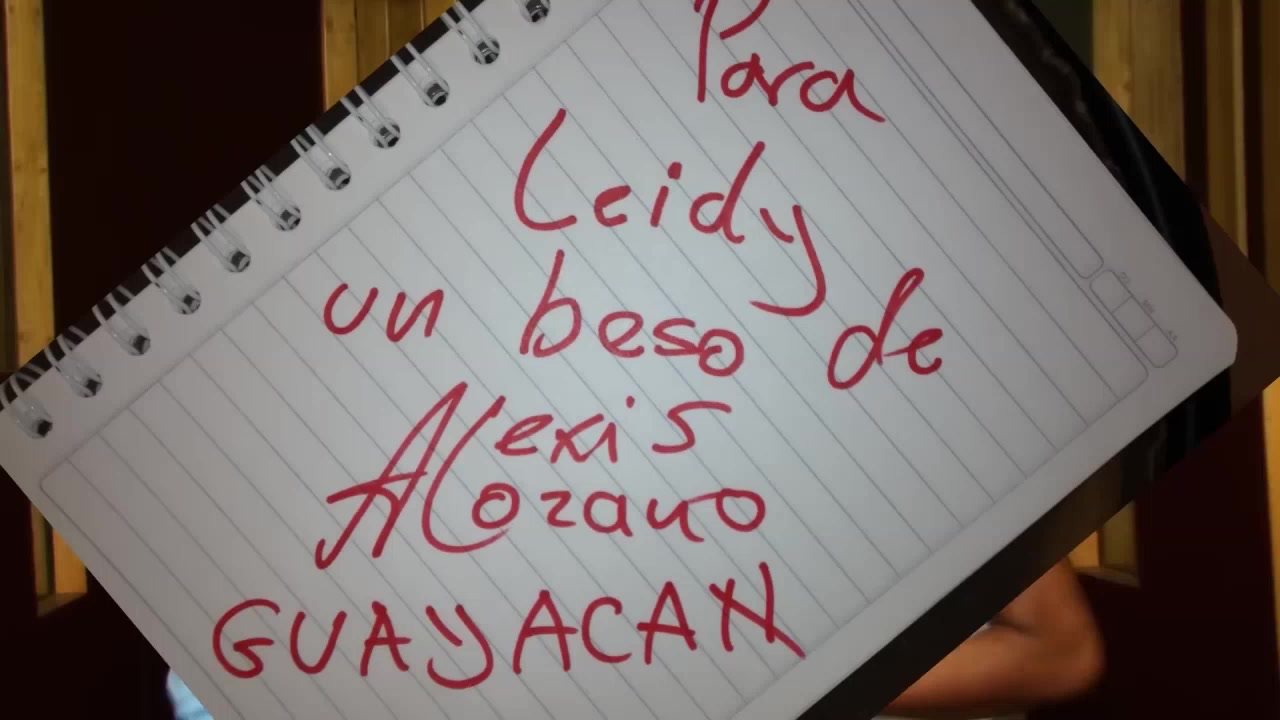 Para
Leidy
un beso de
Alexis
Lozano
GUAYACAN